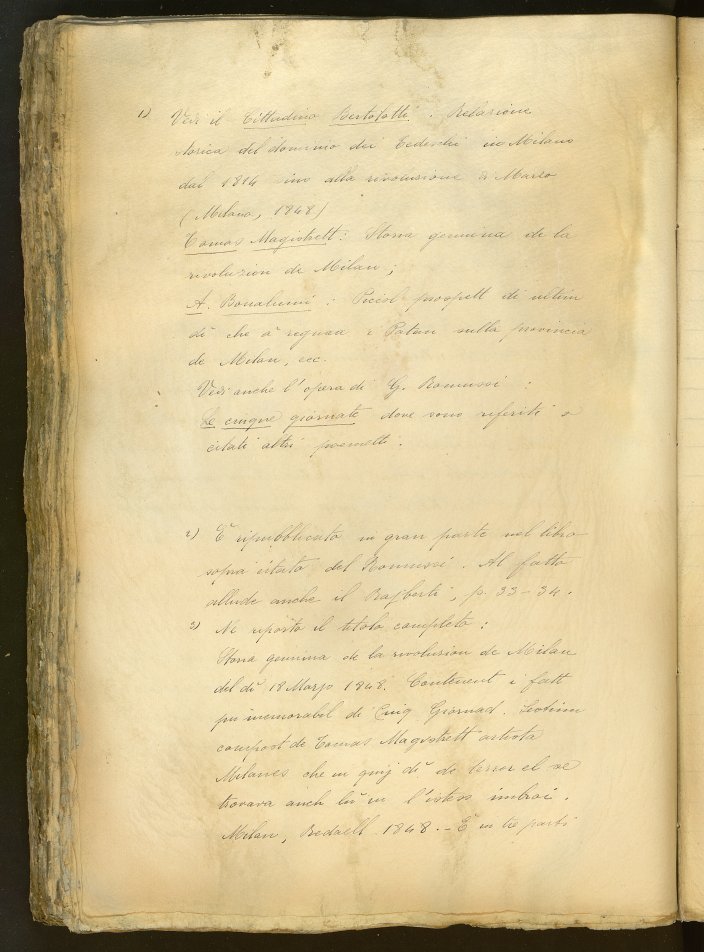 1) Vedi il Cittadino Bertolotti. Relazione
storica del dominio dei Tedeschi in Milano
dal 1814 sino alla rivoluzione di Marzo
(Milano, 1848)
Tomas Magistrett: Storia genuina de la
rivoluzion de Milan;
A. Bonalumi: Piccol prospett di ultim
dì che à regnaa i Patan sulla provincia
de Milan, ecc.
Vedi anche l'opera di G. Romussi:
Le cinque giornate dove sono riferiti o
citati altri poemetti.
2) È ripubblicato in gran parte nel libro
sopra citato del Romussi. Al fatto
allude anche il Rajberti, p. 33-34.
3) Ne riporto il titolo completo:
Storia genuina de la rivolusion de Milan
del dì 18 Marzo 1848. Contenent i fatt
pu memorabel di Cinq Giornad.
compost de Tomas Magistrett artista
Milanes che in quij dì de terror el se
trovava anch lù in l'istess imbroi.
Milan, Redaell 1848. - È in tre parti